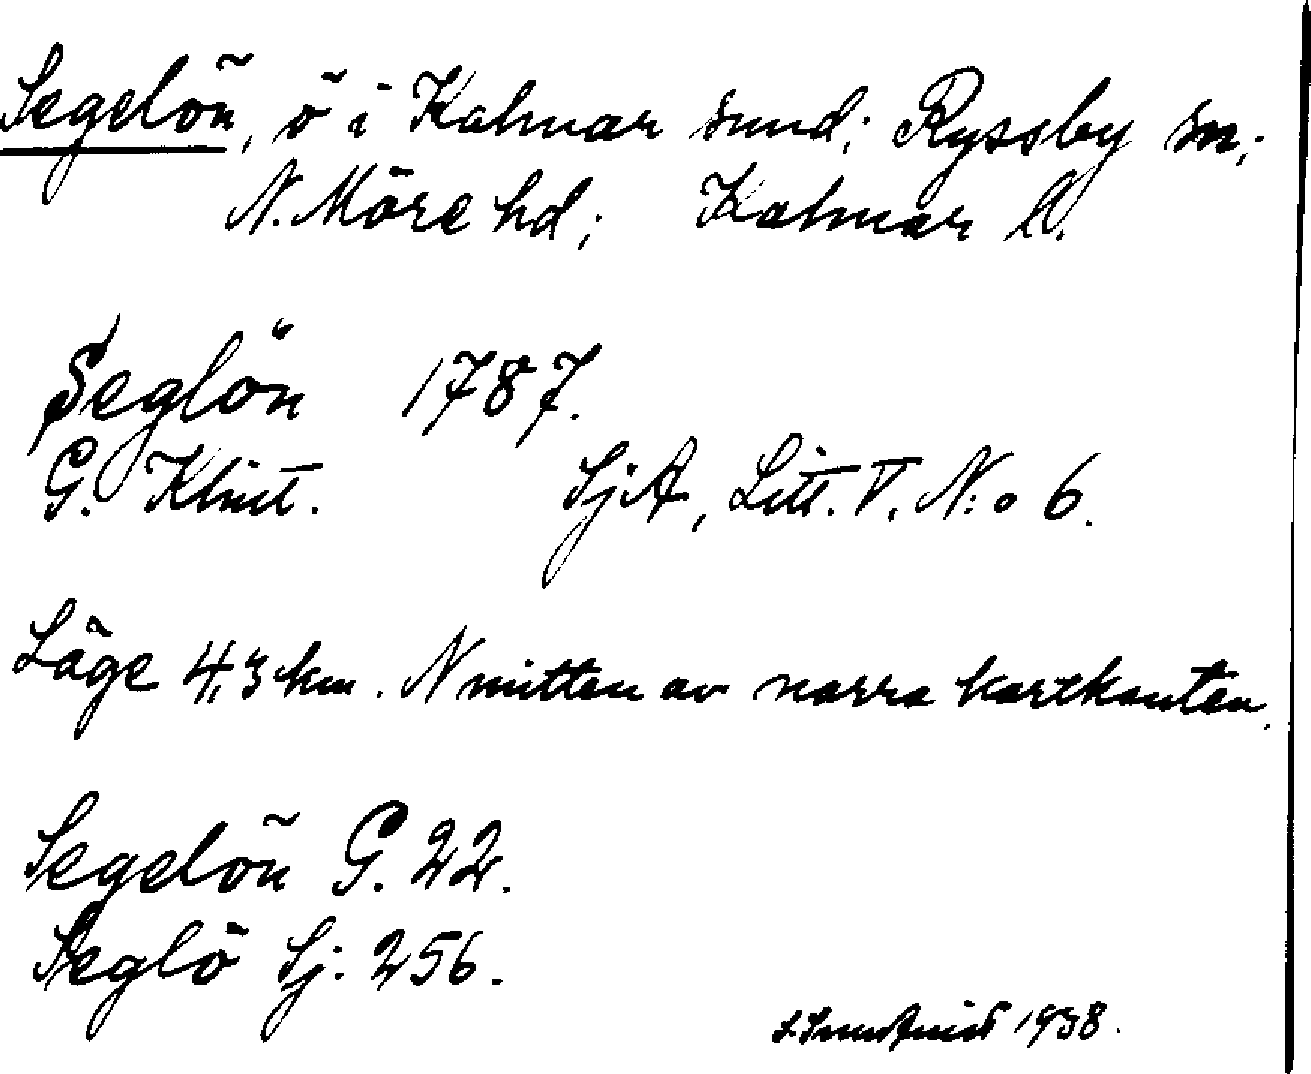 Segelön, ö i Kalmar sund; Ryssby sn;
N. Möre hd; Kalmar l.
Seglön 1787.
G. Klint. SjA, Litt. V. N:o 6.
Läge 4,3 km. N mitten av norra kartkanten.
Segelön G. 22.
Seglö Sj. 256.
1938.